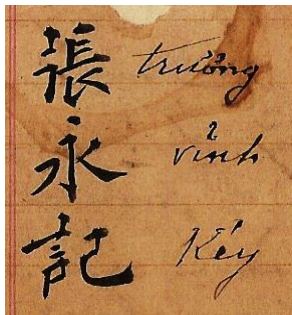 張 trưởng
永 vỉnh
記 Kéy